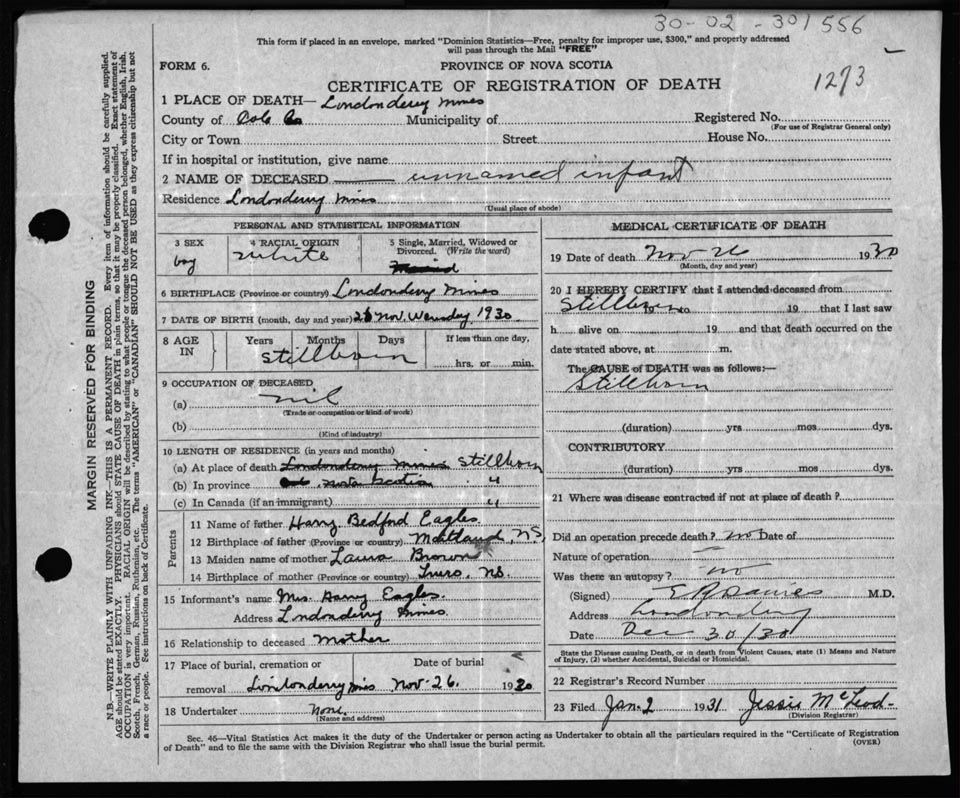 30-02-301556
This form if placed in an envelope, marked "Dominion Statistics—Free, penalty for improper use, $300," and properly addressed
will pass through the Mail "FREE"
FORM 6. PROVINCE OF NOVA SCOTIA
1273
CERTIFICATE OF REGISTRATION OF DEATH
1 PLACE OF DEATH— Londonderry Mines
County of Col Co Municipality of Registered No.
(For use of Registrar General only)
City or Town Street House No.
If in hospital or institution, give name
2 NAME OF DECEASED unnamed infant
Residence Londonderry Mines
(Usual place of abode)
PERSONAL AND STATISTICAL INFORMATION
3 SEX 4 RACIAL ORIGIN 5 Single, Married, Widowed or
Divorced. (Write the word)
boy White
6 BIRTHPLACE (Province or country) Londonderry Mines
7 DATE OF BIRTH (month, day and year) 26 Nov. 1930
8 AGE IN Years Months Days If less than one day,
stillborn hrs. or min.
9 OCCUPATION OF DECEASED
(a) nil
(Trade or occupation or kind of work)
(b)
(Kind of industry)
10 LENGTH OF RESIDENCE (in years and months)
(a) At place of death Londonderry Mines Stillborn
(b) In province Nova Scotia "
(c) In Canada (if an immigrant) "
Parents
11 Name of father Harry Bedford Eagles
12 Birthplace of father (Province or country) Maitland, NS,
13 Maiden name of mother Laura Brown
14 Birthplace of mother (Province or country) Truro, NS.
15 Informant's name Mrs Harry Eagles.
Address Londonderry Mines.
16 Relationship to deceased Mother
17 Place of burial, cremation or Date of burial
removal Londonderry Mines Nov-26. 1930
18 Undertaker None.
(Name and address)
MEDICAL CERTIFICATE OF DEATH
19 Date of death Nov 26 1930
(Month, day and year)
20 I HEREBY CERTIFY that I attended deceased from
Stillborn 19 to 19 that I last saw
h alive on 19 and that death occurred on the
date stated above, at m.
The CAUSE of DEATH was as follows:—
Stillborn
(duration) yrs mos dys.
CONTRIBUTORY
(duration) yrs mos dys.
21 Where was disease contracted if not at place of death?
Did an operation precede death? no Date of
Nature of operation
Was there an autopsy? no
(Signed) E R Davies M.D.
Address Londonderry
Date Dec 30/30
State the Disease causing Death, or in death from Violent Causes, state (1) Means and Nature
of Injury, (2) whether Accidental, Suicidal or Homicidal.
22 Registrar's Record Number
23 Filed Jan. 2 1931 Jessie McLeod
(Division Registrar)
Sec. 46—Vital Statistics Act makes it the duty of the Undertaker or person acting as Undertaker to obtain all the particulars required in the "Certificate of Registration
of Death" and to file the same with the Division Registrar who shall issue the burial permit. (OVER)
MARGIN RESERVED FOR BINDING
N.B.—WRITE PLAINLY WITH UNFADING INK—THIS IS A PERMANENT RECORD. Every item of information should be carefully supplied.
AGE should be stated EXACTLY. PHYSICIANS should STATE CAUSE OF DEATH in plain terms, so that it may be properly classified. Exact statement of
OCCUPATION is very important. RACIAL ORIGIN will be described by stating to what people or tongue the deceased person belonged, whether English, Irish,
Scotch, French, German, Russian, Ruthenian, etc. The terms "AMERICAN" or "CANADIAN" SHOULD NOT BE USED as they express citizenship but not
a race or people. See instructions on back of Certificate.